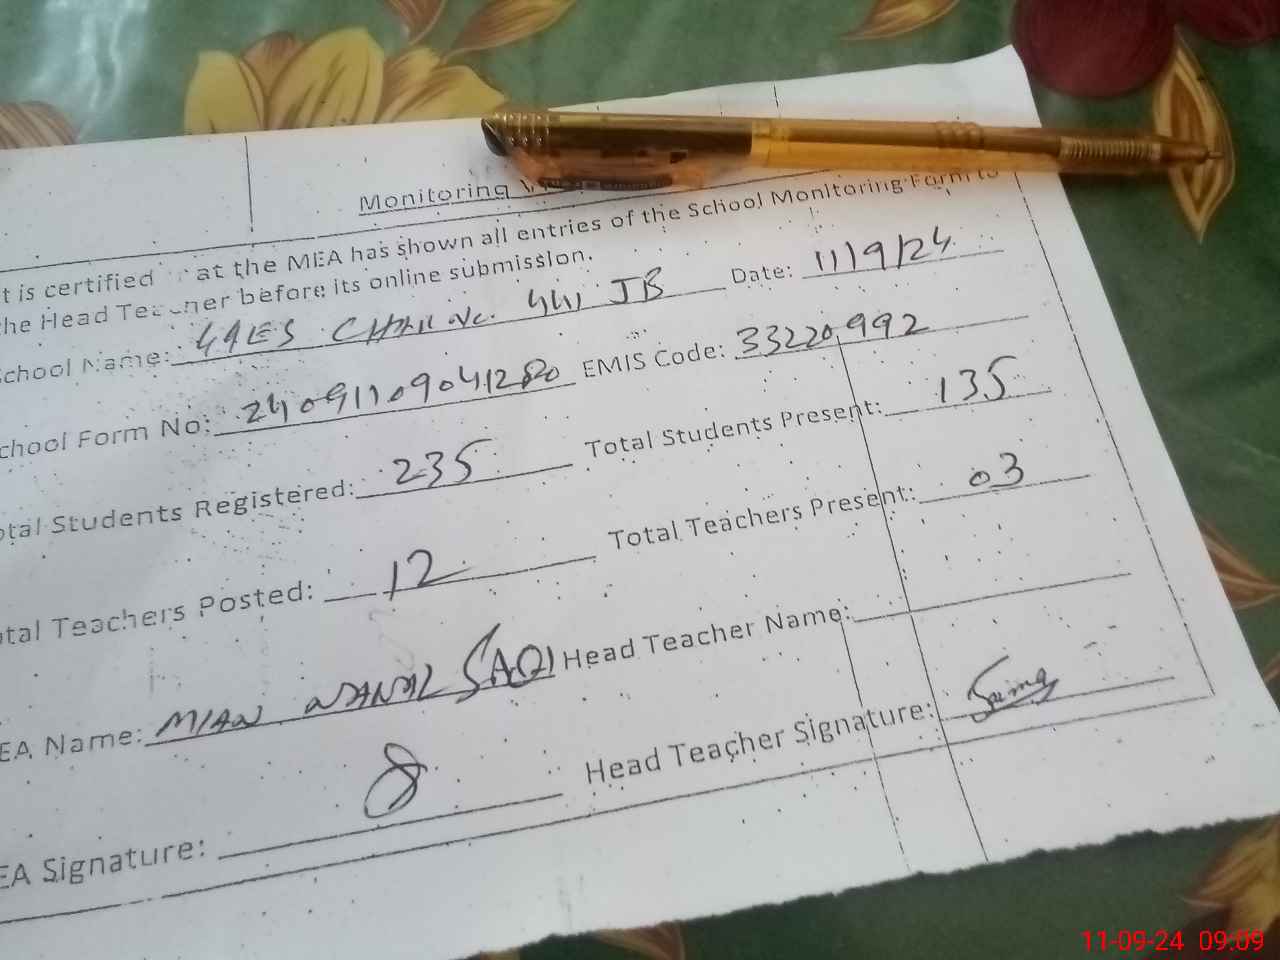 Monitoring
t is certified at the MEA has shown all entries of the School Monitoring Form to
he Head Teacher before its online submission.
chool Name: CHAK No. 441 JB Date: 11/9/24
chool Form No: 24091109041280 EMIS Code: 33220992
otal Students Registered: 235 Total Students Present: 135
otal Teachers Posted: 12 Total Teachers Present: 03
EA Name: MIAN Head Teacher Name:
EA Signature: Head Teacher Signature: Saima
11-09-24 09:09